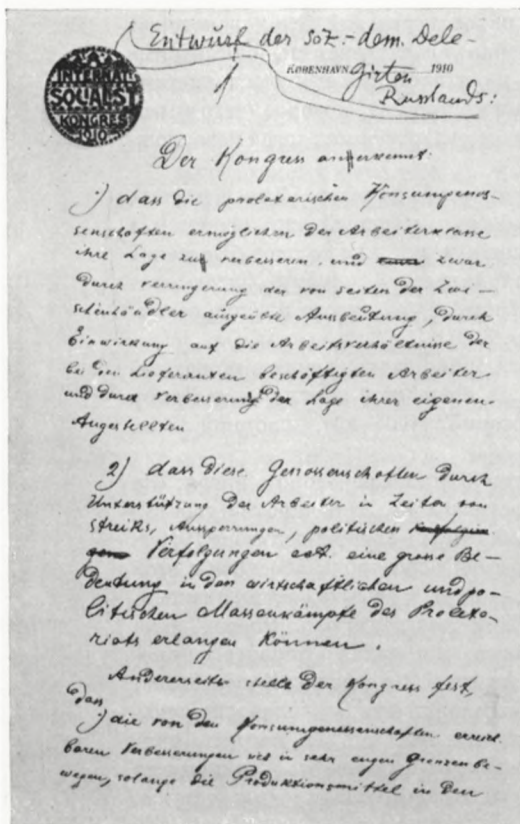 Entwurf der soz.-dem. Dele-
INTERNAT.
SOCIALIST
KONGRES
1910
KØBENHAVN 1910
girten
Russlands:
Der Kongress anerkennt:
1) dass die proletarischen Konsumgenos-
senschaften ermöglichen der Arbeiterklasse
ihre Lage zu verbesseren und zwar
durch verringerung der von seiten der Zwi-
schenhändler ausgeübte Ausbeutung, durch
Einwirkung auf die Arbeitsverhältnisse der
bei den Lieferanten beschäftigten Arbeiter
und durch Verbesserung der Lage ihrer eigenen
Angestellten.
2) dass diese Genossenschaften durch
Unterstützung der Arbeiter in Zeiten von
Streiks, Aussperrungen, politischen
Verfolgungen ect. eine grosse Be-
deutung in den wirtschaftlichen und po-
litischen Massenkämpfe des Proleta-
riats erlangen können.
Andererseits stellt der Kongress fest,
dass
1) die von den Konsumgenossenschaften erreich-
baren Verbesserungen in sehr engen Grenzen be-
wegen, solange die Produktionsmittel in den